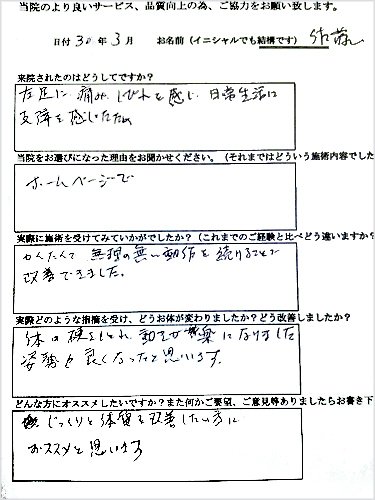 当院のより良いサービス、品質向上の為、ご協力をお願い致します。
日付 30年 3月 お名前（イニシャルでも結構です） 佐藤
来院されたのはどうしてですか？
左足に痛み、しびれを感じ 日常生活に
支障を感じたため
当院をお選びになった理由をお聞かせください。（それまではどういう施術内容でした
ホームページで
実際に施術を受けてみていかがでしたか？（これまでのご経験と比べどう違いますか？
かんたんで 無理の無い動作を続けることで
改善できました。
実際どのような指摘を受け、どうお体が変わりましたか？どう改善しましたか？
体の硬さもとれ、動きが楽になりました
姿勢も良くなったと思います。
どんな方にオススメしたいですか？また何かご要望、ご意見等ありましたらお書き下
じっくりと体質を改善したい方に
おススメと思います